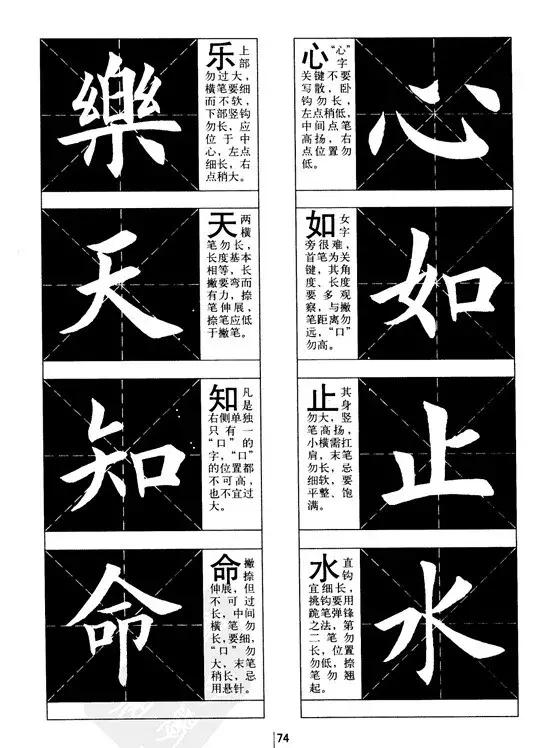 樂
乐上部
勿过大，
横笔要细
而不软，
下部竖钩
勿长，应
位于中
心，左点
细长，右
点稍大。
天
天两横
笔勿长，
长度基本
相等，长
撇要弯而
有力，捺
笔伸展，
捺笔应低
于撇笔。
知
知凡是
右侧单独
只有一
“口”的
字，“口”
的位置都
不可高，
也不宜过
大。
命
命撇捺
伸展，但
不可过
长，中间
横笔勿
长，要细，
“口”勿
大，末笔
稍长，忌
用悬针。
心
心“心”字
关键不要
写散，卧
钩勿长，
左点稍低，
中间点笔
高扬，右
点位置勿
低。
如
如女字
旁很难，
首笔为关
键，其角
度、长度
要多观
察，与撇
笔距离勿
远，“口”
勿高。
止
止其身
勿大，竖
笔高扬，
小横需扛
肩，末笔
勿长，忌
细软，要
平整、饱
满。
水
水直钩
宜细长，
挑钩要用
跪笔弹锋
之法，第
二笔勿
长，位置
勿低，捺
笔勿翘
起。
74